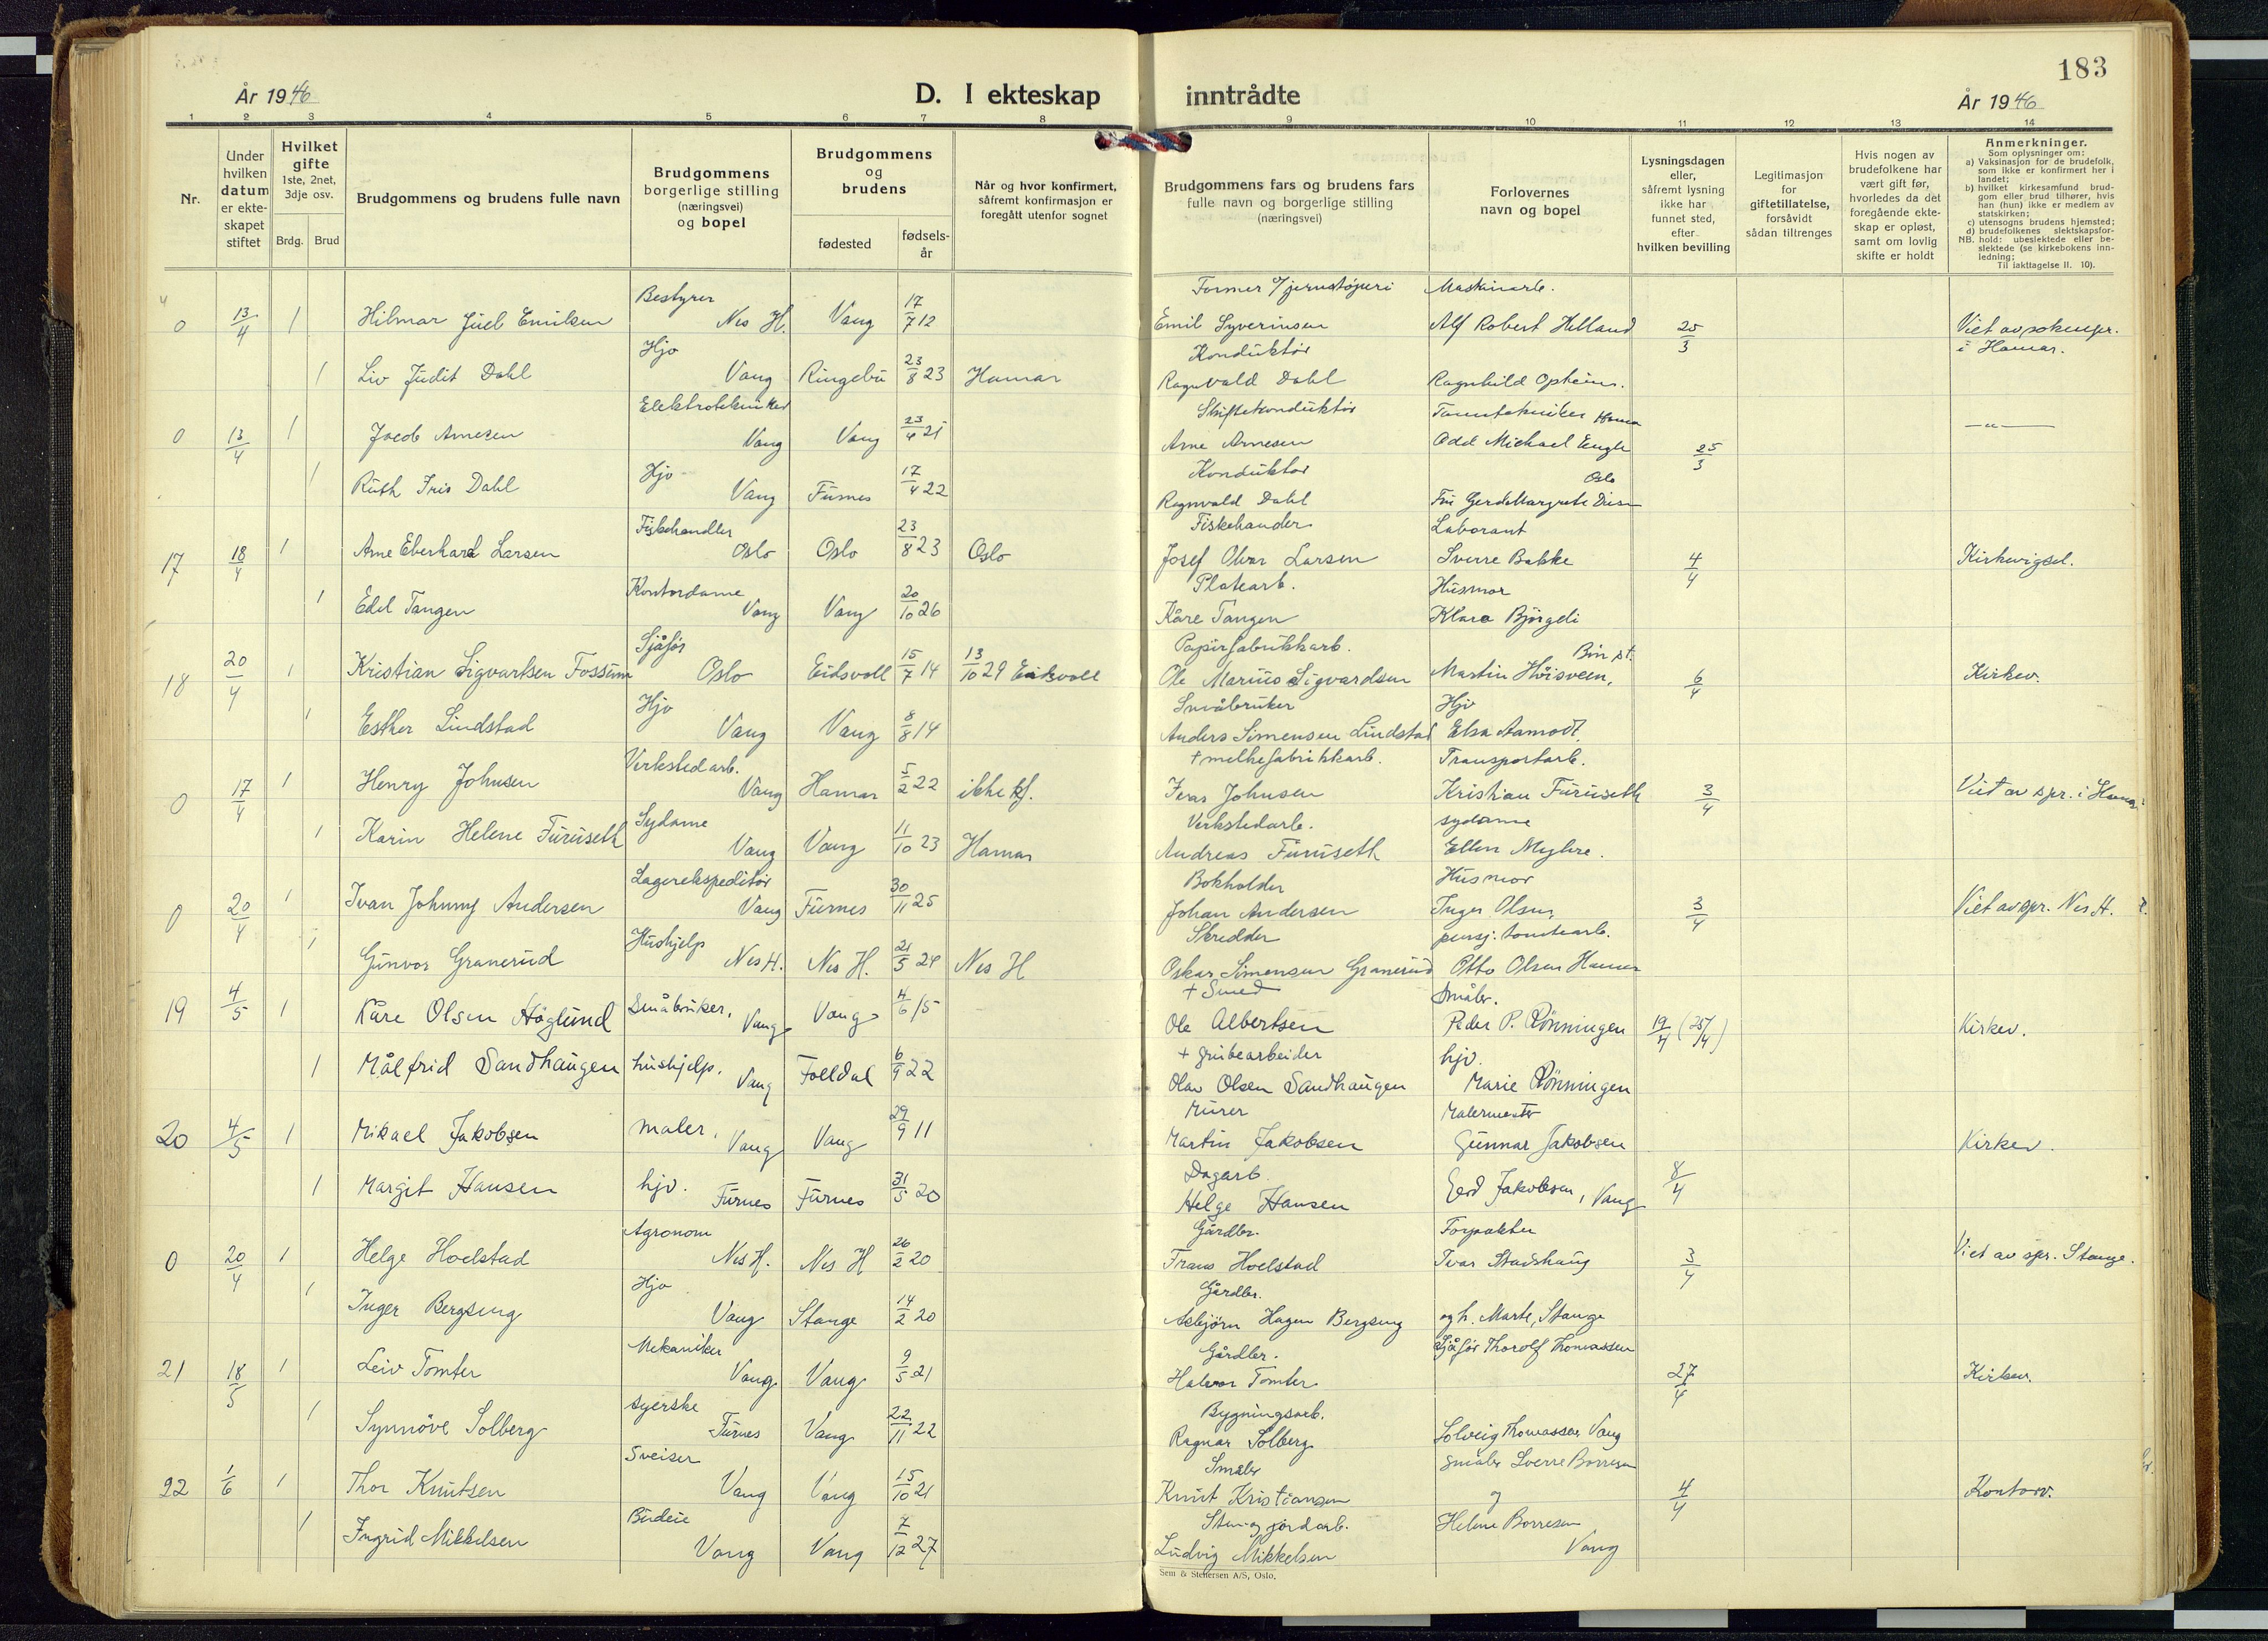 183
År 1946
D. I ekteskap inntrådte
År 1946
1 2 3 4 5 6 7 8 9 10 11 12 13 14
Nr.
Under hvilken datum er ekteskapet stiftet
Hvilket gifte 1ste, 2net, 3dje osv.
Brdg. Brud
Brudgommens og brudens fulle navn
Brudgommens borgerlige stilling (næringsvei) og bopel
Brudgommens og brudens
fødested
fødselsår
Når og hvor konfirmert, såfremt konfirmasjon er foregått utenfor sognet
Brudgommens fars og brudens fars fulle navn og borgerlige stilling (næringsvei)
Forlovernes navn og bopel
Lysningsdagen eller, såfremt lysning ikke har funnet sted, efter hvilken bevilling
Legitimasjon for giftetillatelse, forsåvidt sådan tiltrenges
Hvis nogen av brudefolkene har vært gift før, hvorledes da det foregående ekteskap er opløst, samt om lovlig skifte er holdt
Anmerkninger.
Som oplysninger om:
a) Vaksinasjon for de brudefolk, som ikke er konfirmert her i landet;
b) hvilket kirkesamfund brudgom eller brud tilhører, hvis han (hun) ikke er medlem av statskirken;
c) utensogns brudens hjemsted;
d) brudefolkenes slektskapsforhold: ubeslektede eller beslektede (se kirkebokens innledning;
NB. Til iakttagelse II. 10).
Bestyrer Former v/jernstøperi Maskinarb.
0 13/4 1 Hilmar Juel Emilsen Nes H. Vang 17/7 12 Emil Syverinsen Alf Robert Helland 25/3 Viet av sokenspr. i Hamar.
Hjv Konduktør
1 Liv Judit Dahl Vang Ringebu 23/8 23 Hamar Ragnvald Dahl Ragnhild Opheim.
Elektrotekniker Skiftekonduktør Tanntekniker Hamar
0 13/4 1 Jacob Arnesen Vang Vang 23/4 21 Arne Arnesen Odd Michael Engh 25/3 —"—
Hjv Konduktør Oslo
1 Ruth Iris Dahl Vang Furnes 17/4 22 Ragnvald Dahl Fru Gerd Margrete
Fiskehandler Fiskehander Laborant
17 18/4 1 Arne Eberhard Larsen Oslo Oslo 23/8 23 Oslo Josef Olvar Larsen Sverre Bakke 4/4 Kirkevigsel.
Kontordame Platearb. Husmor
1 Edel Tangen Vang Vang 20/10 26 Kåre Tangen Klara Bjørgeli
Sjåfør Papirfabrikkarb. st.
18 20/4 1 Kristian Sigvartsen Fossum Oslo Eidsvoll 15/7 14 13/10 29 Eidsvoll Ole Marius Sigvardsen Martin Høisveen, 6/4 Kirkev.
Hjv Småbruker Hjv
1 Esther Lindstad Vang Vang 8/8 14 Anders Simensen Lindstad Elsa Aamodt.
Verkstedarb. + melkefabrikkarb. Transportarb.
0 17/4 1 Henry Johnsen Vang Hamar 5/2 22 ikke kf. Johnsen Kristian Furuseth 3/4 Viet av spr. i Hamar
Sydame Verkstedarb. sydame
1 Karin Helene Furuseth Vang Vang 11/10 23 Hamar Andreas Furuseth Ellen Myhre.
Lagerekspeditør Bokholder Husmor
0 20/4 1 Ivan Johnny Andersen Vang Furnes 30/11 25 Johan Andersen Inger Olsen, 3/4 Viet av spr. Nes H.
Hushjelp Skredder pensj. tomtearb.
1 Gunvor Granerud Nes H. Nes H. 21/5 24 Nes H Oskar Simensen Granerud Otto Olsen Hamar
+ Smed Småbr.
19 4/5 1 Kåre Olsen Høglund Småbruker, Vang Vang 4/6 15 Ole Albertsen Peder P. Rønningen 19/4 (25/4) Kirkev.
+ grubearbeider hjv.
1 Målfrid Sandhaugen hushjelp. Vang Folldal 6/9 22 Olav Olsen Sandhaugen Marie Rønningen
Murer Malermester
20 4/5 1 Mikael Jakobsen maler, Vang Vang 29/9 11 Martin Jakobsen Gunnar Jakobsen Kirkev.
Dagarb.
1 Margit Hansen hjv. Furnes Furnes 31/5 20 Helge Hansen Gerd Jakobsen, Vang 8/4
Agronom Gårdbr. Forpakter
0 20/4 1 Helge Hoelstad Nes H. Nes H 26/2 20 Frans Hoelstad Ivar Stadshaug 3/4 Viet av spr. Stange.
Hjv Gårdbr.
1 Inger Bergseng Vang Stange 14/2 20 Asbjørn Hagen Bergseng og h. Marte, Stange
Mekaniker Gårdbr. Sjåfør Thorolf Thomassen
21 18/5 1 Leiv Tomter Vang Vang 9/5 21 Halvor Tomter 27/4 Kirkev.
syerske Bygningsarb.
1 Synnøve Solberg Furnes Vang 22/11 22 Ragnar Solberg Solveig Thomassen Vang
Sveiser Småbr småbr Sverre Borresen
22 1/6 1 Thor Knutsen Vang Vang 15/10 21 Knut Kristiansen og 4/4 Kontorv.
Budeie Sten og jordarb. Helene Borresen
1 Ingrid Mikkelsen Vang Vang 7/12 27 Ludvig Mikkelsen Vang
Sem & Stenersen A/S, Oslo.